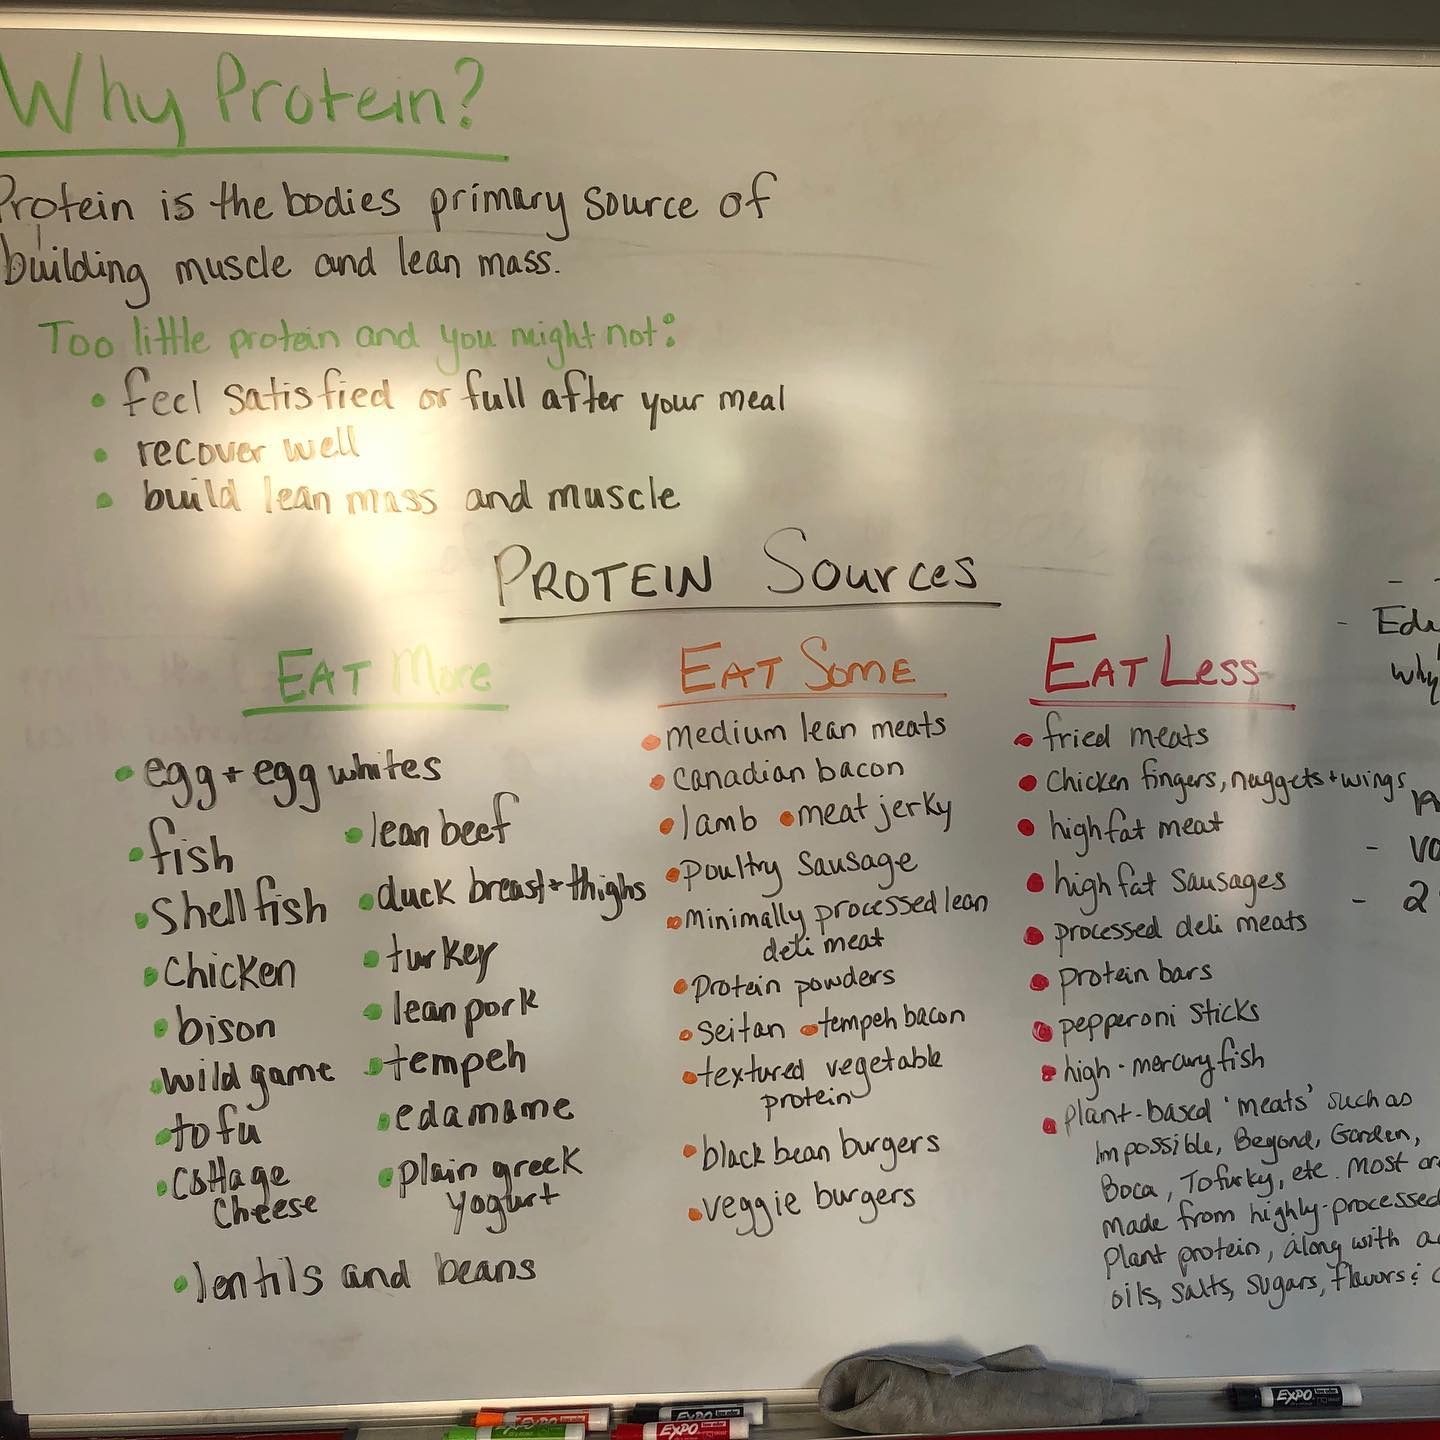 Why Protein?
Protein is the bodies primary source of
building muscle and lean mass.
Too little protein and you might not:
• feel satisfied or full after your meal
• recover well
• build lean mass and muscle
PROTEIN Sources
EAT More
• egg + egg whites
• fish
• Shellfish
• chicken
• bison
• wild game
• tofu
• cottage
cheese
• lean beef
• duck breast + thighs
• turkey
• lean pork
• tempeh
• edamame
• plain greek
yogurt
• lentils and beans
EAT Some
• medium lean meats
• Canadian bacon
• lamb • meat jerky
• Poultry Sausage
• Minimally processed lean
deli meat
• Protein powders
• seitan • tempeh bacon
• textured vegetable
protein
• black bean burgers
• veggie burgers
EAT Less
• fried meats
• Chicken fingers, nuggets + wings
• high fat meat
• high fat sausages
• processed deli meats
• protein bars
• pepperoni sticks
• high-mercury fish
• plant-based 'meats' such as
Impossible, Beyond, Garden,
Boca, Tofurky, etc. Most
made from highly-processed
plant protein, along with
oils, salts, sugars, flavors &
why
- 2
EXPO
EXPO
EXPO
EXPO